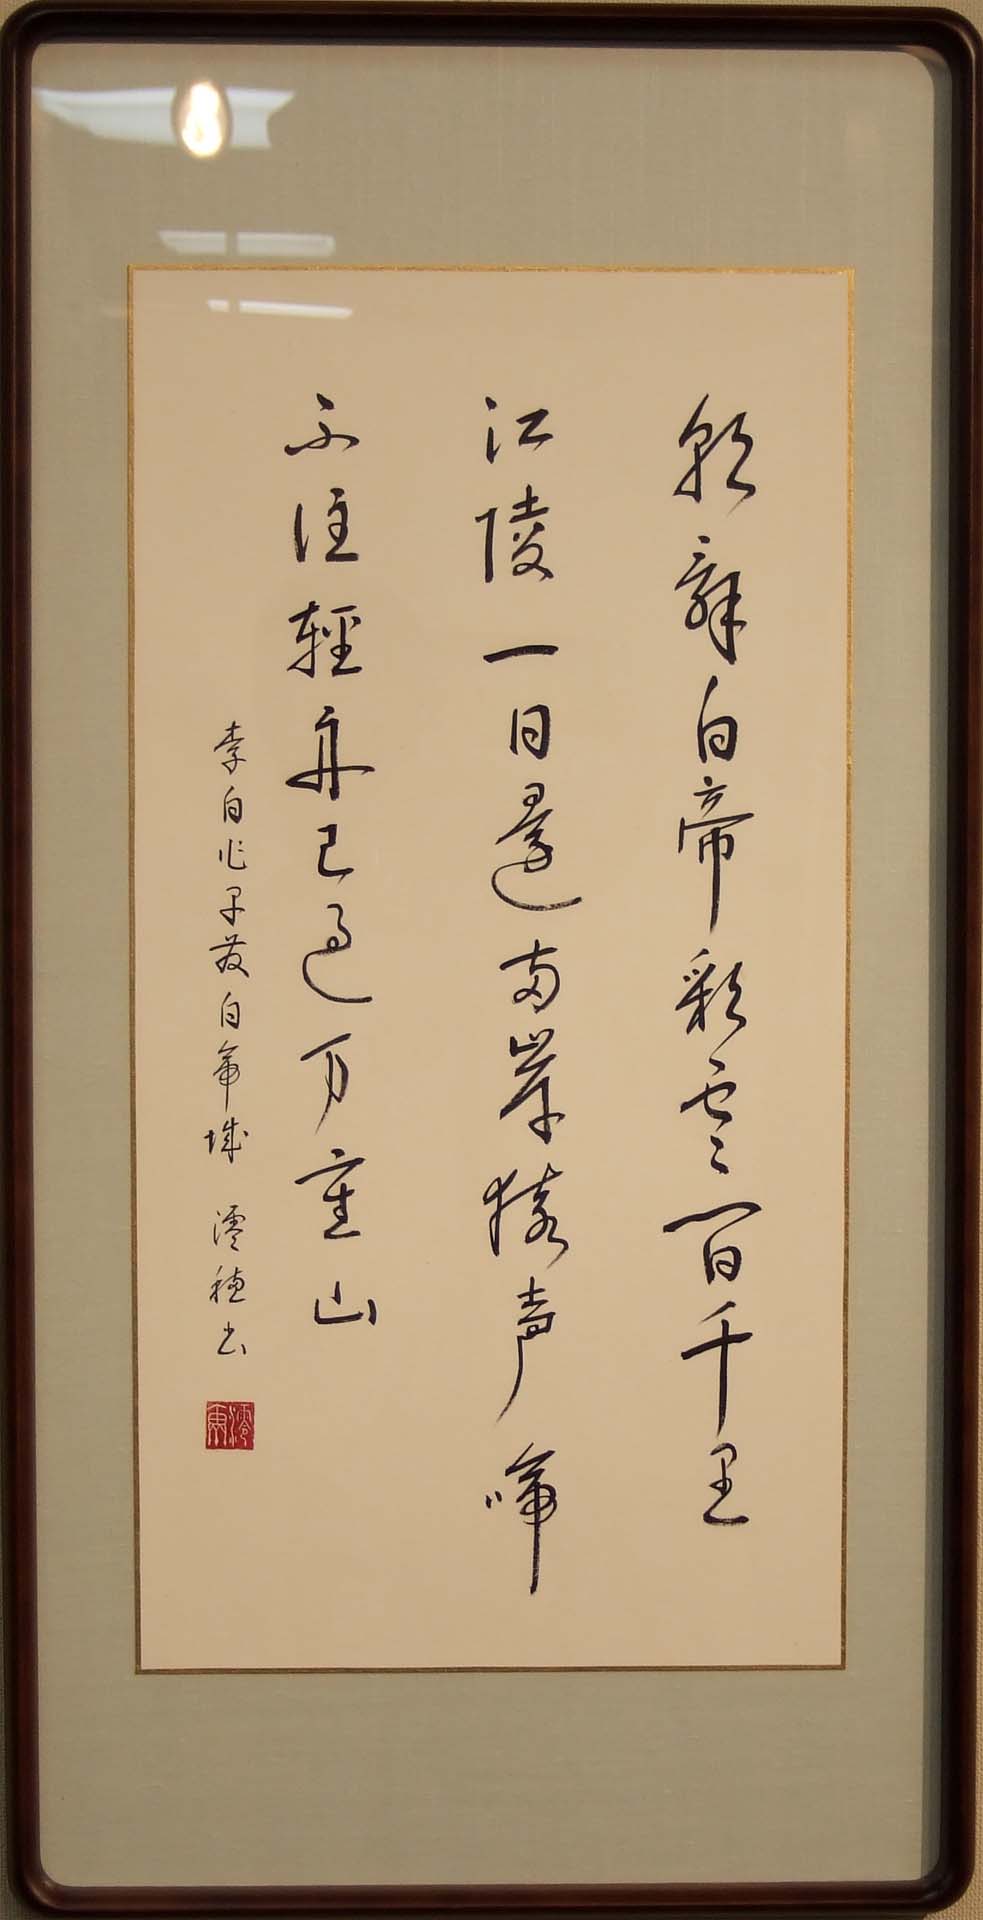 朝辞白帝彩雲間千里
江陵一日還両岸猿声啼
不住輕舟已過万重山
李白作早發白帝城 澪穂書